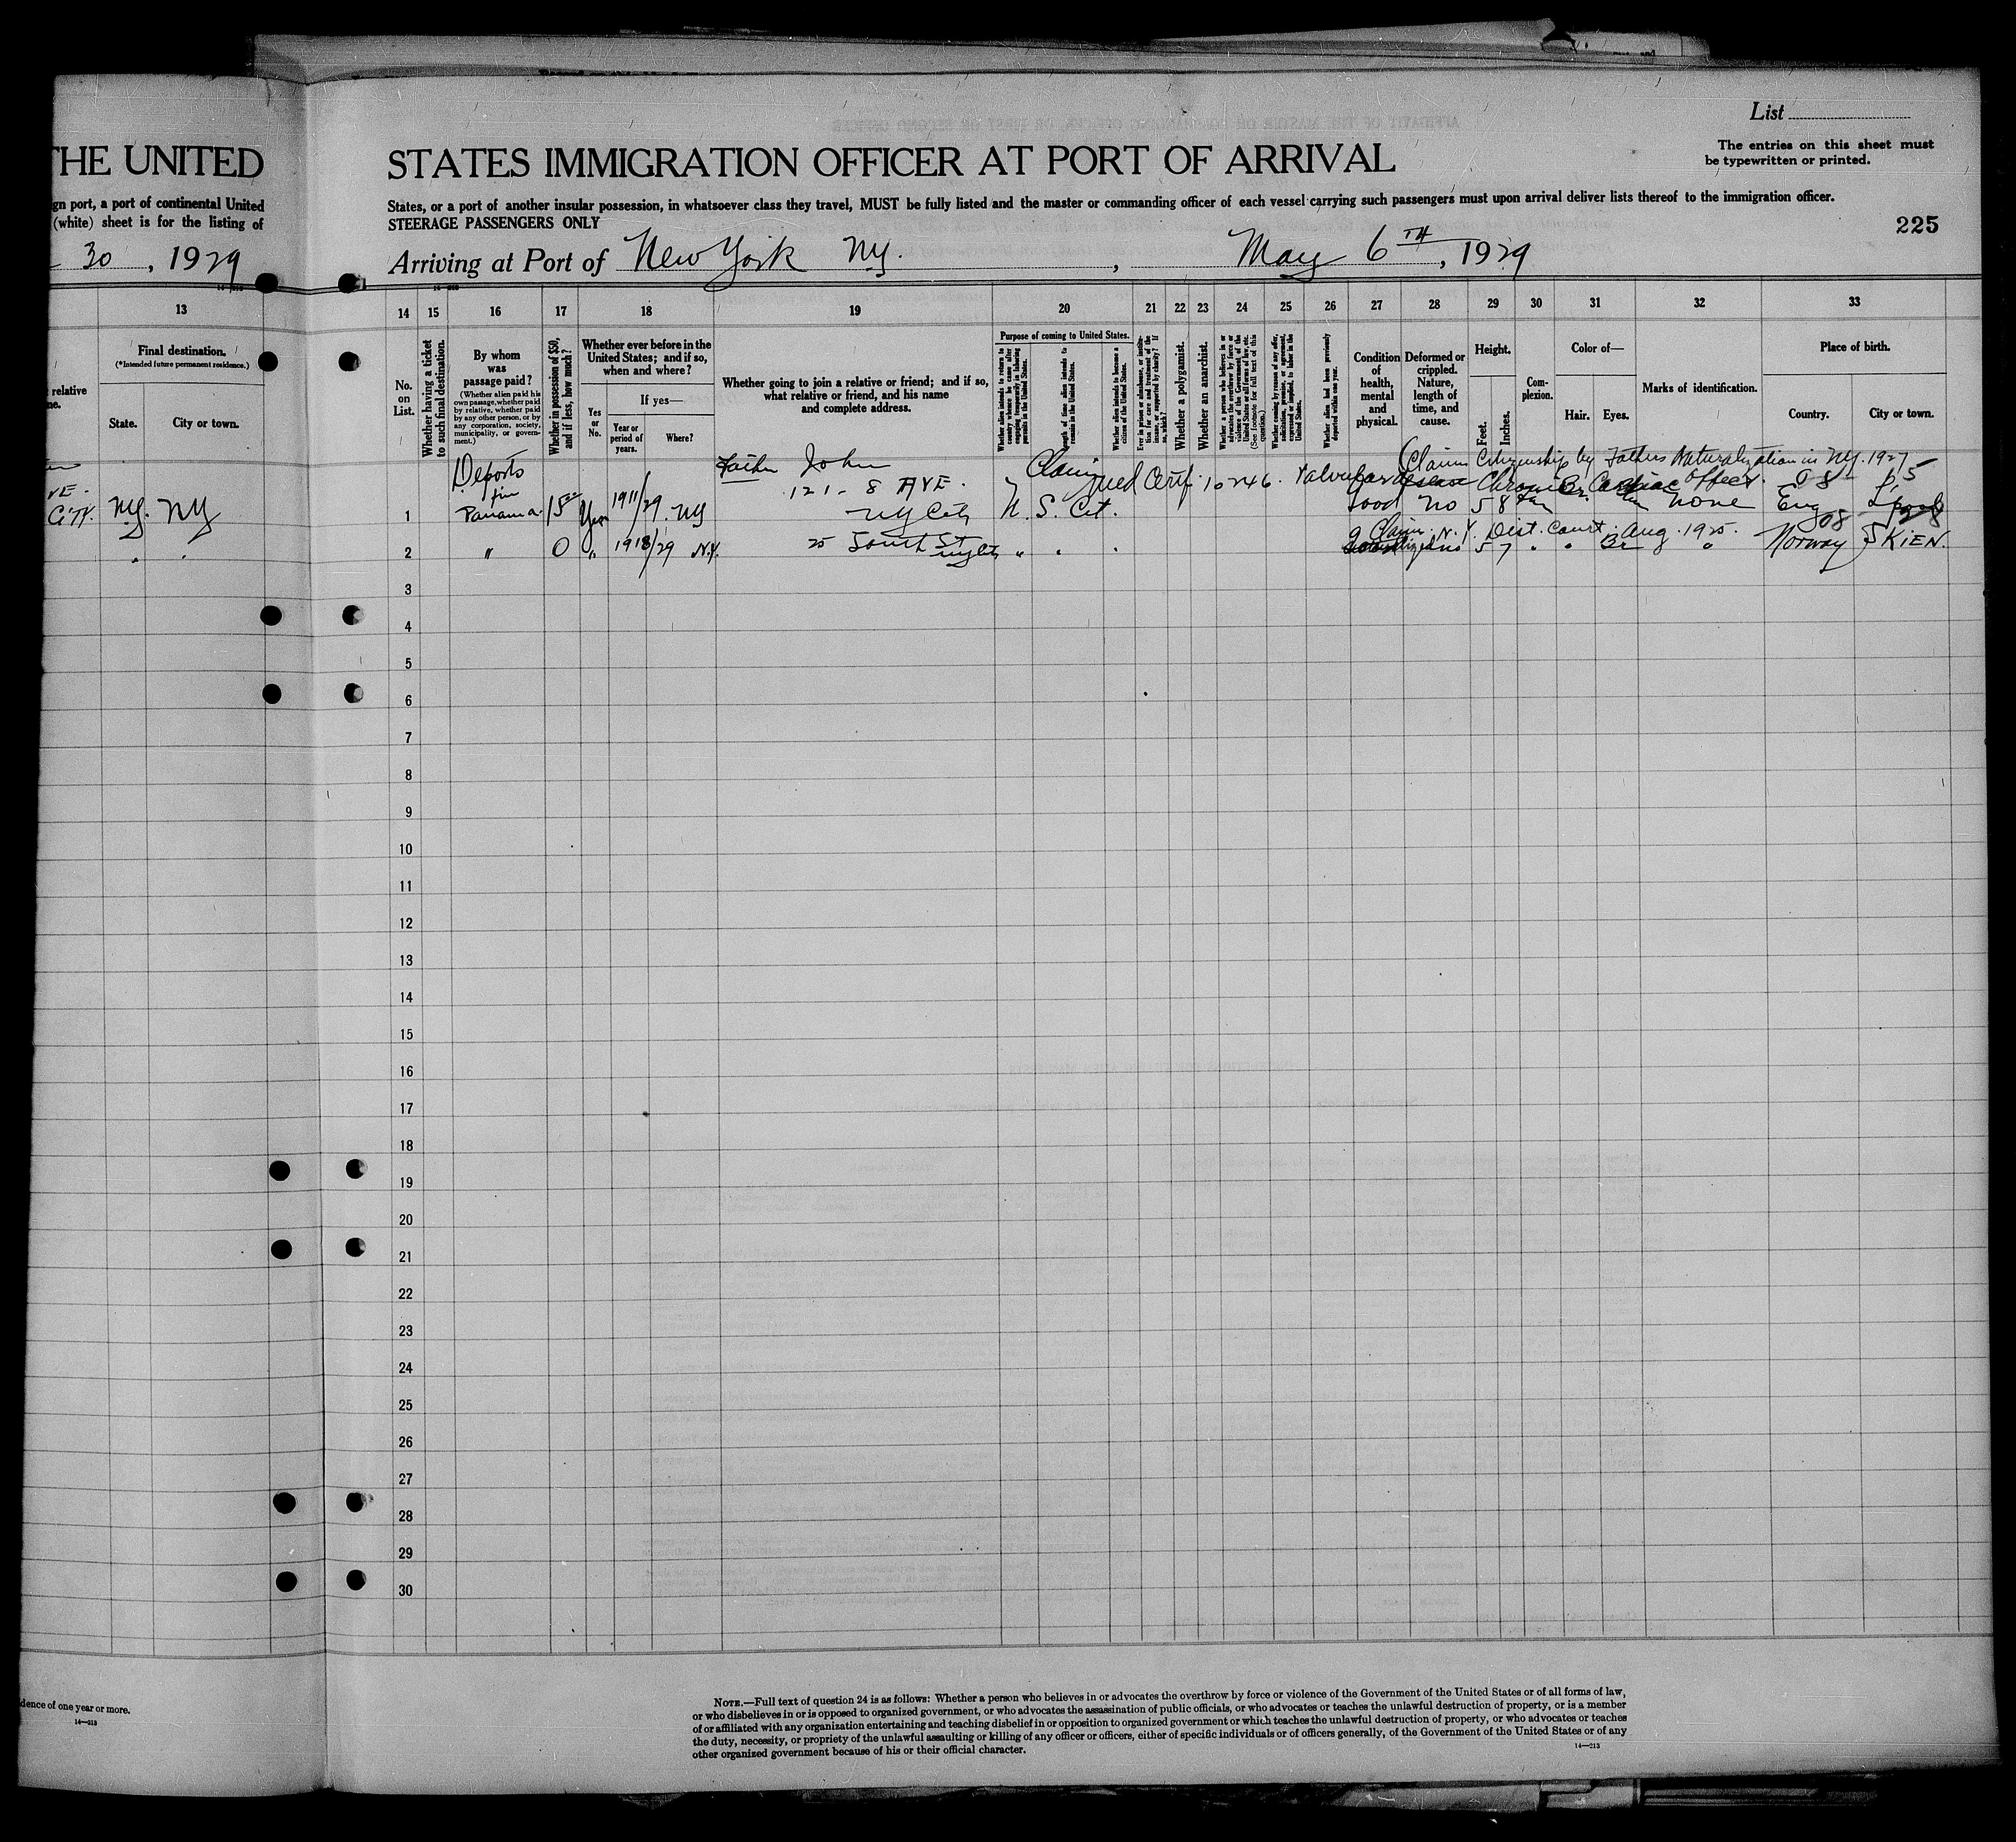 THE UNITED
gn port, a port of continental United
(white) sheet is for the listing of
30, 1929
List
The entries on this sheet must
be typewritten or printed.
STATES IMMIGRATION OFFICER AT PORT OF ARRIVAL
States, or a port of another insular possession, in whatsoever class they travel, MUST be fully listed and the master or commanding officer of each vessel carrying such passengers must upon arrival deliver lists thereof to the immigration officer.
STEERAGE PASSENGERS ONLY
225
Arriving at Port of New York NY. , May 6TH, 1929
13
14 15 16 17 18 19 20 21 22 23 24 25 26 27 28 29 30 31 32 33
relative
ne.
Final destination.
(*Intended future permanent residence.)
State.
City or town.
No.
on
List.
Whether having a ticket
to such final destination.
By whom
was
passage paid?
(Whether alien paid his
own passage, whether paid
by relative, whether paid
by any other person, or by
any corporation, society,
municipality, or govern-
ment.)
Whether in possession of $50,
and if less, how much?
Whether ever before in the
United States; and if so,
when and where?
Yes
or
No.
If yes—
Year or
period of
years.
Where?
Whether going to join a relative or friend; and if so,
what relative or friend, and his name
and complete address.
Purpose of coming to United States.
Whether alien intends to return to
country whence he came after
engaging temporarily in laboring
pursuits in the United States.
Length of time alien intends to
remain in the United States.
Whether alien intends to become a
citizen of the United States.
Ever in prison or almshouse, or institu-
tion for care and treatment of the
insane, or supported by charity? If
so, which?
Whether a polygamist.
Whether an anarchist.
Whether a person who believes in or
advocates the overthrow by force or
violence of the Government of the
United States or all forms of law, etc.
(See footnote for full text of this
question.)
Whether coming by reason of any offer,
solicitation, promise, or agreement,
expressed or implied, to labor in the
United States.
Whether alien had been previously
deported within one year.
Condition
of
health,
mental
and
physical.
Deformed or
crippled.
Nature,
length of
time, and
cause.
Height.
Feet.
Inches.
Com-
plexion.
Color of—
Hair.
Eyes.
Marks of identification.
Place of birth.
Country.
City or town.
Claim Citizenship by Fathers Naturalization in NY. 1927
VE.
Deports
Father John
121 - 8 AVE.
Certif. 10246
CITY. NY. NY
1 Panama 15 Yes 1911/29. NY NY City U. S. Cit. Good No 5 8 Br none Eng
Claim. N.Y. Dist. Court. Aug. 1925.
2 " 0 " 1918/29 N.Y. 25 South St NY City " . . no 5 7 " " Br " Norway SKIEN.
3
4
5
6
7
8
9
10
11
12
13
14
15
16
17
18
19
20
21
22
23
24
25
26
27
28
29
30
dence of one year or more.
14—213
NOTE.—Full text of question 24 is as follows: Whether a person who believes in or advocates the overthrow by force or violence of the Government of the United States or of all forms of law,
or who disbelieves in or is opposed to organized government, or who advocates the assassination of public officials, or who advocates or teaches the unlawful destruction of property, or is a member
of or affiliated with any organization entertaining and teaching disbelief in or opposition to organized government or which teaches the unlawful destruction of property, or who advocates or teaches
the duty, necessity, or propriety of the unlawful assaulting or killing of any officer or officers, either of specific individuals or of officers generally, of the Government of the United States or of any
other organized government because of his or their official character.
14—213